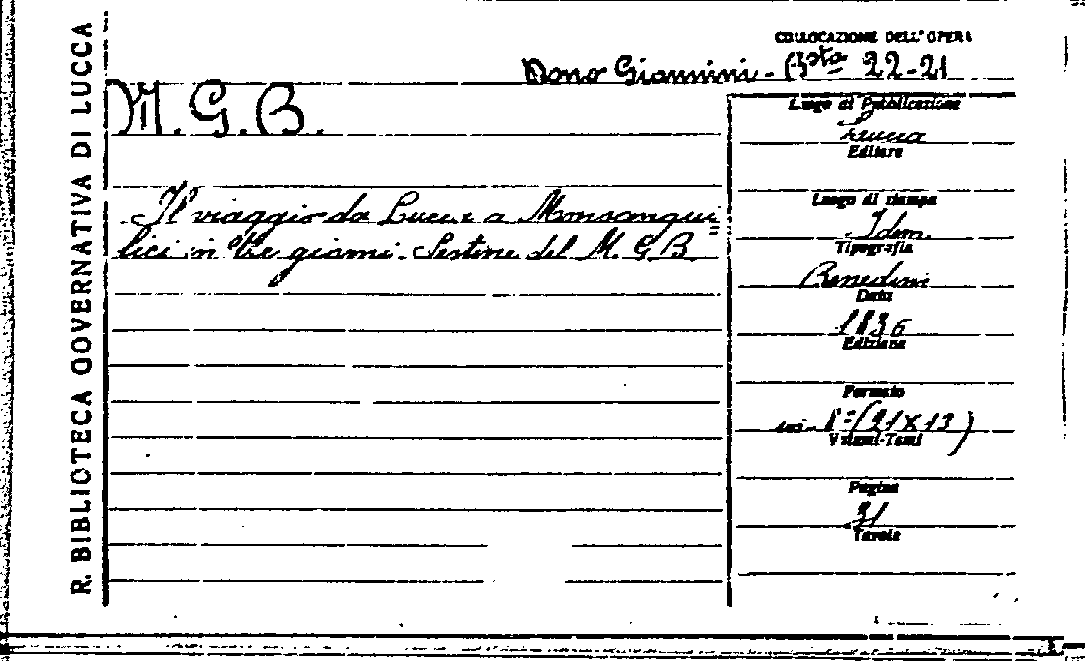 R. BIBLIOTECA GOVERNATIVA DI LUCCA
COLLOCAZIONE DELL'OPERA
Dono Giannini - Bsta 22-21
M. G. B.
Il viaggio da Lucca a Monsangui=
lici in tre giorni. Sestine del M. G. B.
Luogo di Pubblicazione
Lucca
Editore
Luogo di stampa
Idem.
Tipografia
Benedini
Data
1836
Edizione
Formato
in-8º (21 X 13)
Volumi-Tomi
Pagine
31
Tavole